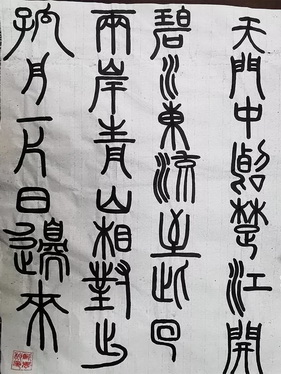 天門中斷楚江開
碧水東流直此回
兩岸青山相對出
孤一片日邊來